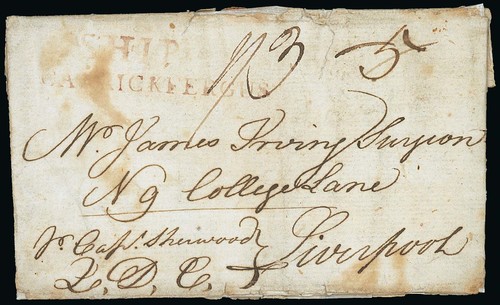 SHIP
CARRICKFERGUS
1/13 5
Mr. James Irving Surgeon
No 9 College Lane
pr. Capt. Sherwood Liverpool
Q. D. C.